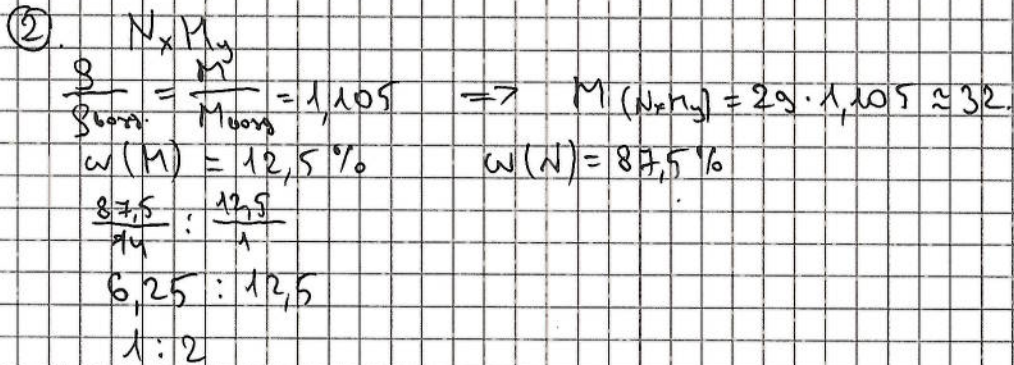 2. NxHy
ρ/ρвозд. = M/Mвозд = 1,105 => M(NxHy) = 29·1,105 ≈ 32.
ω(H) = 12,5% ω(N) = 87,5%
87,5/14 : 12,5/1
6,25 : 12,5
1 : 2